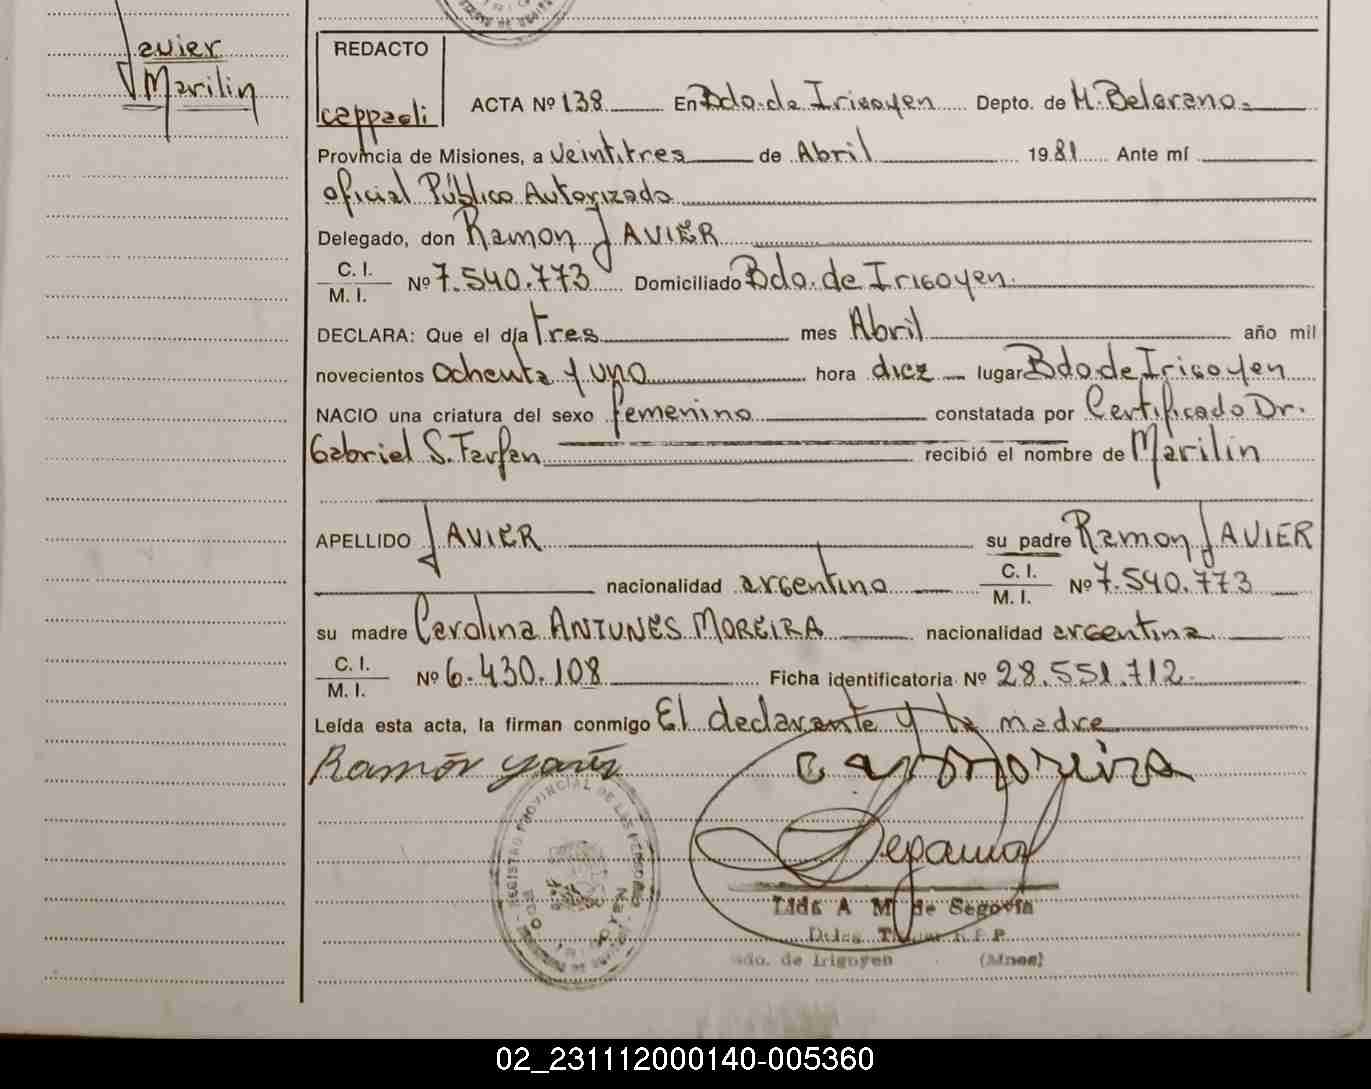 Javier
Marilin
REDACTO
cappaoli
ACTA Nº 138 En Bdo. de Irigoyen Depto. de M. Belgrano.
Provincia de Misiones, a Veintitres de Abril 1981 Ante mí
oficial Público Autorizado
Delegado, don Ramon JAVIER
C. I.
M. I. Nº 7.540.773 Domiciliado Bdo. de Irigoyen.
DECLARA: Que el día tres mes Abril año mil
novecientos ochenta y uno hora diez lugar Bdo de Irigoyen
NACIO una criatura del sexo femenino constatada por Certificado Dr.
Gabriel S. Farfan recibió el nombre de Marilin
APELLIDO JAVIER su padre Ramon JAVIER
nacionalidad argentino C. I.
M. I. Nº 7.540.773
su madre Carolina ANTUNES MOREIRA nacionalidad argentina
C. I.
M. I. Nº 6.430.108 Ficha identificatoria Nº 28.551.712.
Leída esta acta, la firman conmigo El declarante y la madre
Ramón
Moreira
REGISTRO PROVINCIAL DE LAS PERSONAS
Lida A M de Segovia
Deleg. R. P. P.
Bdo. de Irigoyen (Mnes)
02_231112000140-005360